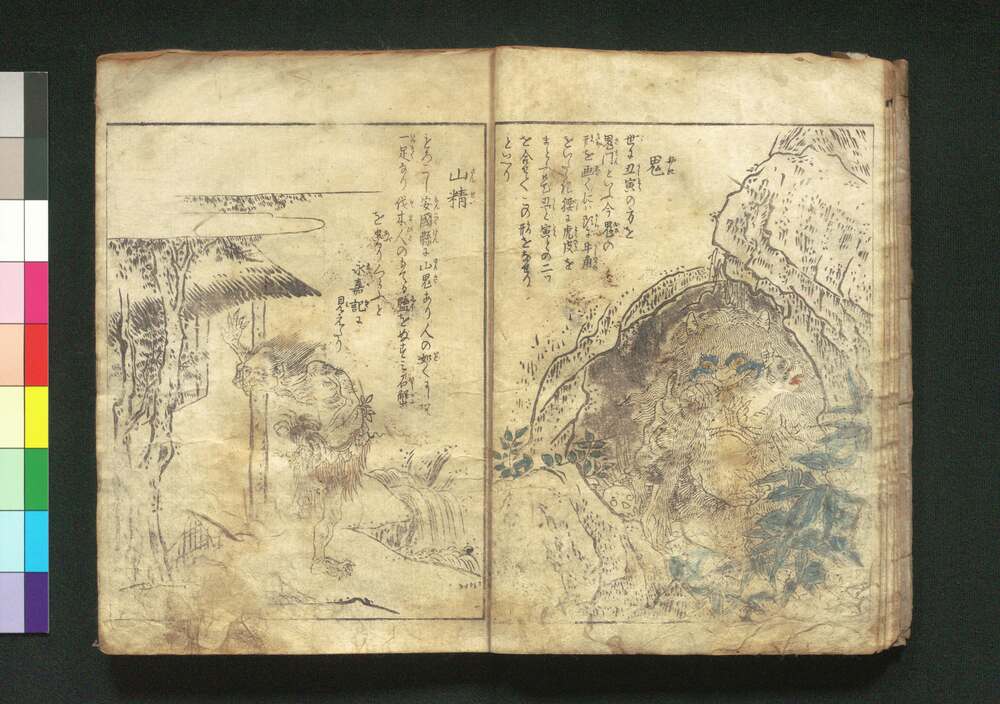 鬼
世に丑寅の方を
鬼門といふ今鬼の
形を画くには頭に牛角
をいたゞき腰に虎皮を
まとふ是丑と寅との二つ
を合せてこの形をなせり
といへり
山精
もろこし安國縣に山鬼あり人の如くにして
一足なり伐木人のもてる鹽をぬすみ石蟹
を炙りくらふと
永嘉記に
見えたり